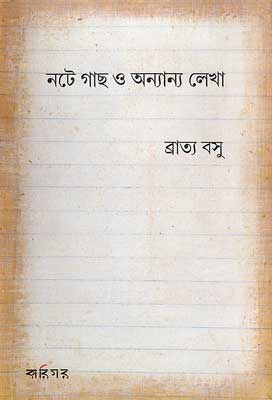 নটে গাছ ও অন্যান্য লেখা
ব্রাত্য বসু
কারিগর